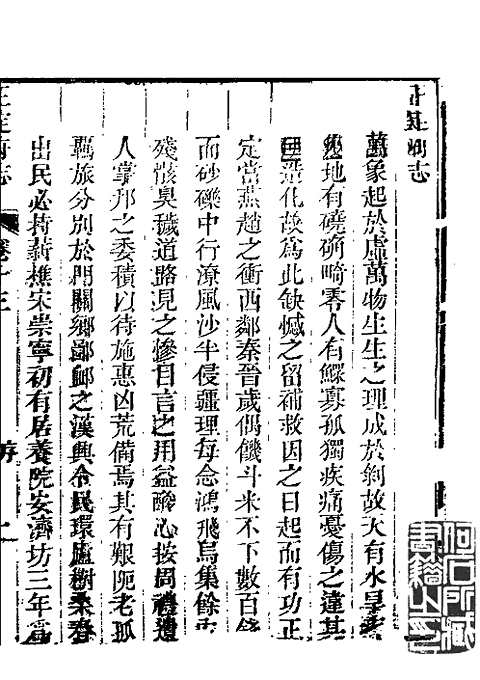 正定府志
萬象起於虛萬物生生之理成於剝故天有水旱
地有磽确畸零人有鰥寡孤獨疾痛憂傷之違其
造化故為此缺憾之留補救因之日起而有功正
定當燕趙之衝西鄰秦晉歲偶饑斗米不下數百錢
而砂礫中行潦風沙半侵疆理每念鴻飛烏集餘
殘骸臭穢道路見之慘目言之用益酸心按周禮遺
人掌邦之委積以待施惠凶荒備焉其有艱阨老孤
羈旅分別於門關鄉鄙郊之漢興令民環廬樹桑春
出民必持薪樵宋崇寧初有居養院安濟坊三年
正定府志
卷十三
序
二